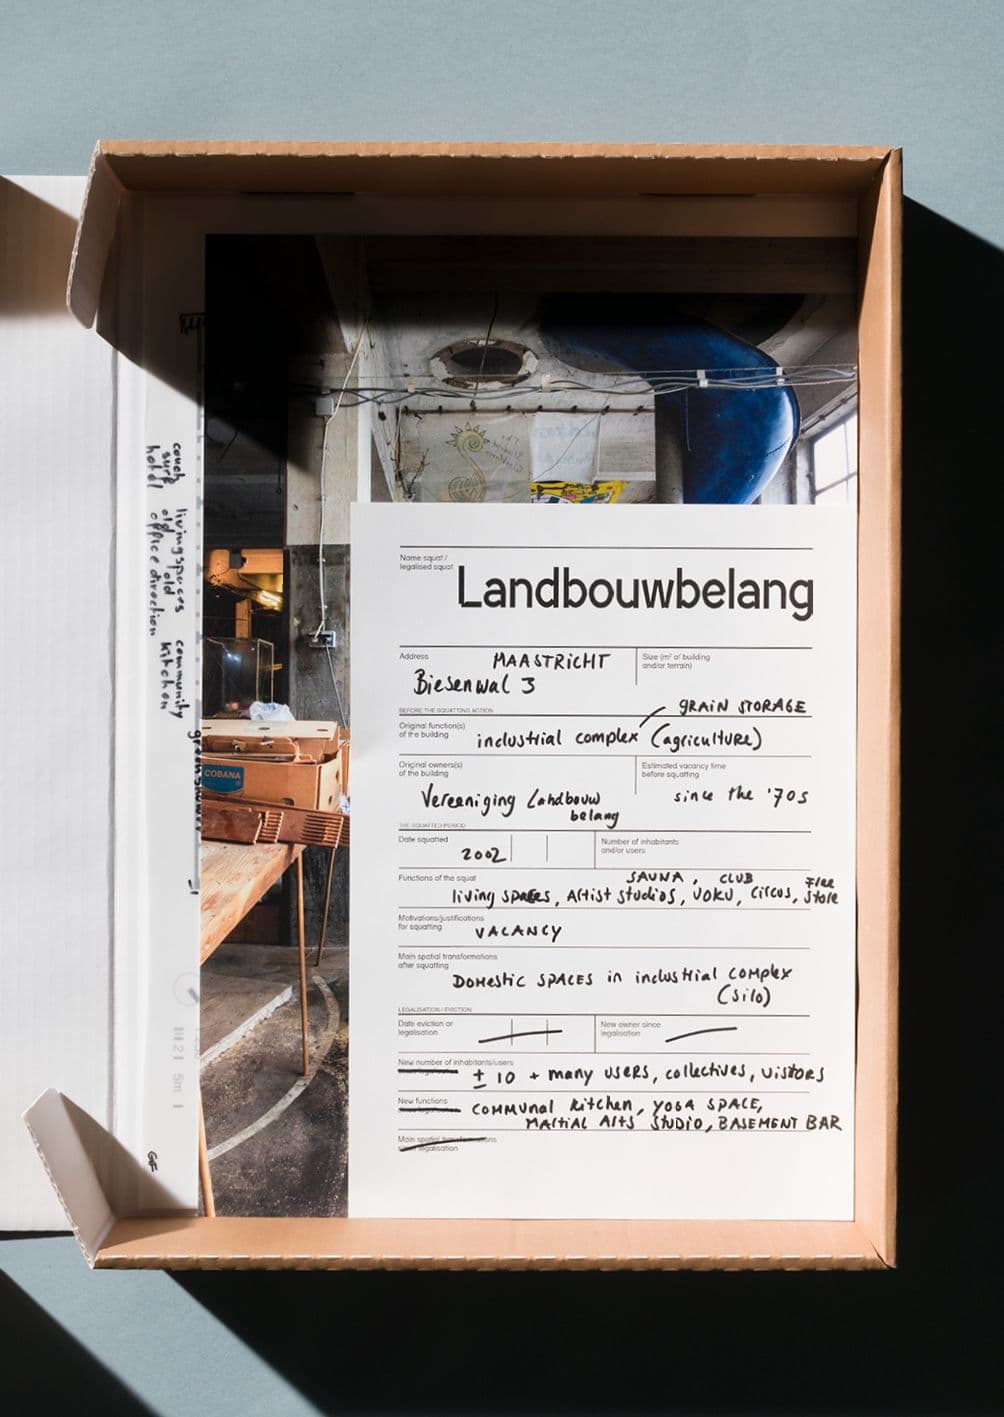 couch livingspaces community
surf old old kitchen
hotel office direction
COBANA
5m
GF
Name squat/
legalised squat
Landbouwbelang
Address
MAASTRICHT
Biesenwal 3
Size (m² of building
and/or terrain)
BEFORE THE SQUATTING ACTION
GRAIN STORAGE
Original function(s)
of the building
industrial complex (agriculture)
Original owners(s)
of the building
Vereeniging Landbouw
belang
Estimated vacancy time
before squatting
since the '70s
THE SQUATTED PERIOD
Date squatted
2002
Number of inhabitants
and/or users
Functions of the squat
SAUNA, CLUB Free
living spaces, Artist Studios, VOKU, Circus, Store
Motivations/justifications
for squatting
VACANCY
Main spatial transformations
after squatting
DOMESTIC SPACES in industrial complex
(Silo)
LEGALISATION / EVICTION
Date eviction or
legalisation
New owner since
legalisation
New number of inhabitants/users
± 10 + many users, collectives, visitors
New functions
COMMUNAL kitchen, YOGA SPACE,
Martial Arts Studio, BASEMENT BAR
Main spatial transformations
legalisation